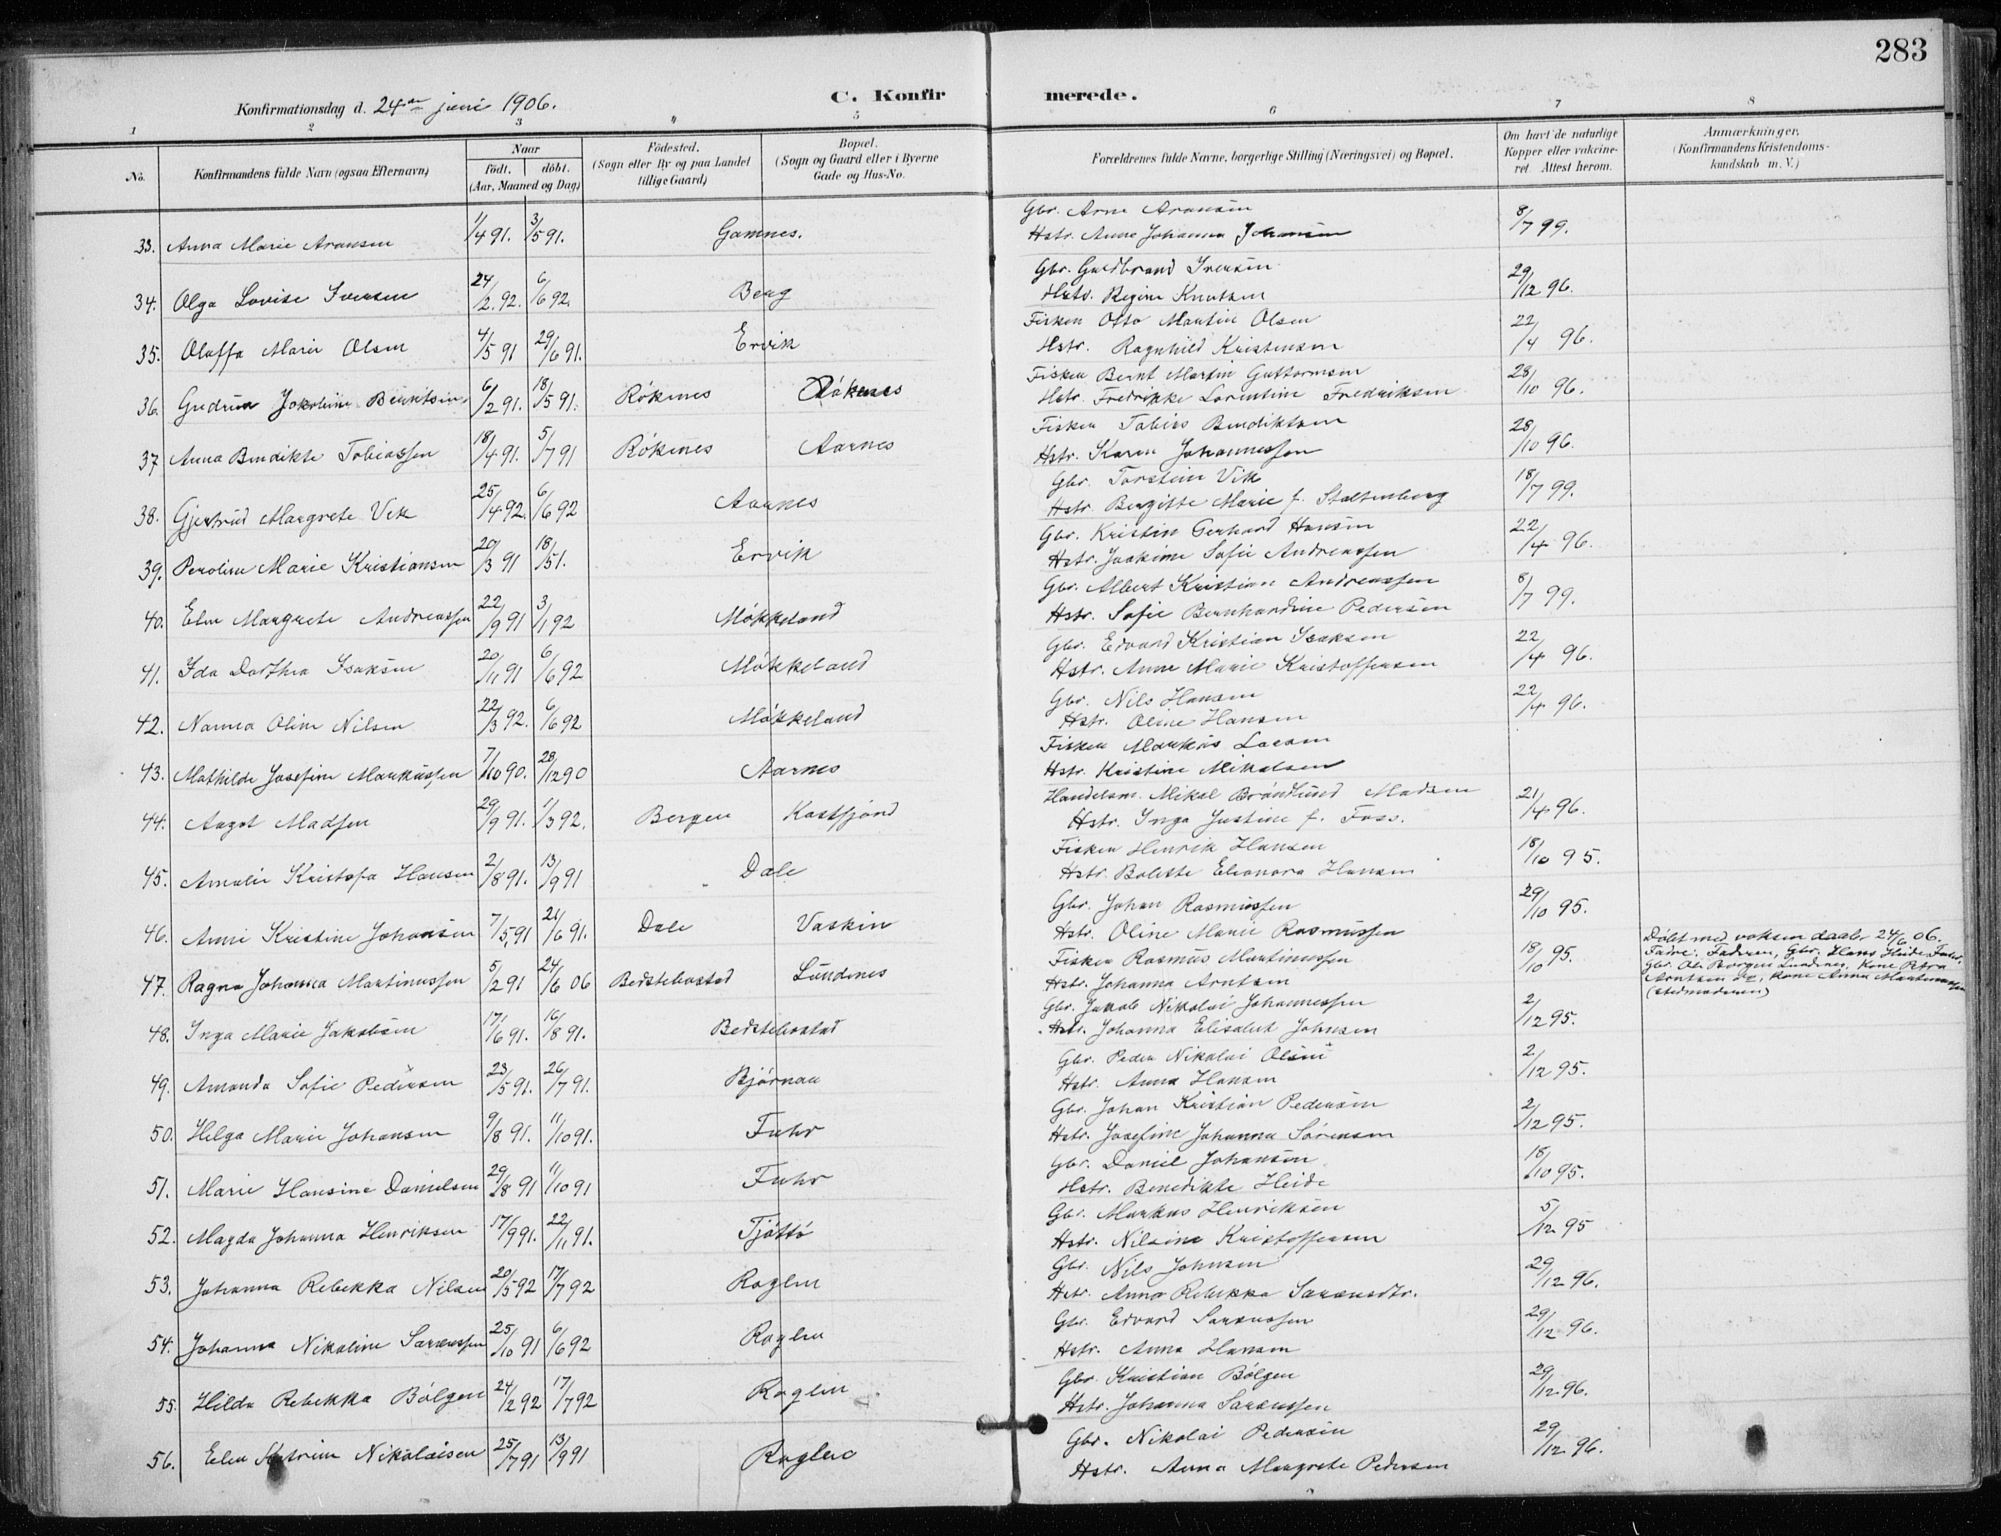 283
Konfirmationsdag d. 24de juni 1906.
C. Konfirmerede.
1 2 3 4 5 6 7 8
No.
Konfirmandens fulde Navn (ogsaa Efternavn)
Naar
født. døbt.
(Aar, Maaned og Dag)
Födested.
(Sogn eller By og paa Landet
tillige Gaard)
Bopæl.
(Sogn og Gaard eller i Byerne
Gade og Hus-No.
Forældrenes fulde Navne, borgerlige Stilling (Næringsvei) og Bopæl.
Om havt de naturlige
Kopper eller vakcine-
ret. Attest herom.
Anmærkninger.
(Konfirmandens Kristendoms-
kundskab m. V.)
33. Anna Marie Aronsen 1/4 91. 3/5 91. Gamnes. Gbr. Arne Aronsen 8/7 99.
Hstr. Anne Johanna Johansen
34. Olga Lovise Iversen 24/2 92. 6/6 92. Berg Gbr. Guldbrand Iversen 29/12 96.
Hstr. Regine Knutsen
35. Oluffa Marie Olsen 4/5 91 29/6 91. Ervik Fisker Otto Martin Olsen 22/4 96.
Hstr. Ragnhild Kristensen
36. Gudrun Jakobine Berntsen 6/2 91. 18/5 91. Rökenes Rökenes Fisker Bernt Martin Guttormsen 28/10 96.
Hstr. Fredrikke Lorentine Fredriksen
37 Anna Bendikte Tobiassen 18/4 91. 5/7 91 Rökenes Aarnes Fisker Tobias Bendiktsen 28/10 96.
Hstr. Karen Johannessen
38. Gjertrud Margrete Vik 25/4 92. 6/6 92 Aarnes Gbr. Torstein Vik 18/7 99.
Hstr. Bergitte Marie f. Stoltenberg
39. Peroline Marie Kristiansen 20/3 91 18/5 1. Ervik Gbr. Kristin Gerhard Hansen 22/4 96.
Hstr. Joakime Sofie Andreassen
40. Elen Margrete Andreassen 22/9 91 3/1 92 Mökkeland Gbr. Albert Kristian Andreassen 8/7 99.
Hstr. Sofie Bernhardine Pedersen
41. Ida Dorthea Isaksen 20/11 91 6/6 92 Mökkeland Gbr. Edvard Kristian Isaksen 22/4 96.
Hstr. Anne Marie Kristoffersen
42. Nanna Oline Nilsen 22/3 92. 6/6 92 Mökkeland Gbr. Nils Hansen 22/4 96.
Hstr. Oline Hansen
43. Mathilde Josefine Markussen 7/10 90. 28/12 90 Aarnes Fisker Markus Larsen
Hstr. Kristine Mikalsen
44. Aagot Madsen 29/9 91. 1/3 92. Bergen Kastfjord Handelsm. Mikal Brönlund Madsen 21/4 96.
Hstr. Inga Justine f. Foss.
45. Amalie Kristofa Hansen 2/8 91. 13/9 91 Dale Fisker Henrik Hansen 18/10 95.
Hstr. Bolette Eleonora Hansen
46. Anni Kristine Johansen 7/5 91 21/6 91. Dale Vaskin Gbr. Johan Rasmussen 29/10 95.
Hstr. Oline Marie Rasmussen
47. Ragna Johanna Martinussen 5/2 91 24/6 06 Bedstebostad Lundenes Fisker Rasmus Martinussen 18/10 95.
Hstr. Johanna Arntsen
Döbt med voksen daab 24/6 06.
Fadre: Faderen, Gbr. Hans Heide Fuhr,
Gbr. Ole Borgen Lundenes, Kone Petra
Arntsen, Kone Anna Martinussen
(stedmoderen)
48. Inga Marie Jakobsen 17/6 91. 16/8 91. Bedstebostad Gbr. Jakob Nikolai Johannessen 2/12 95.
Hstr. Johanna Elisabet Johnsen
49. Amanda Sofie Pedersen 23/5 91. 26/7 91. Björnaa Gbr. Peder Nikolai Olsen 2/12 95.
Hstr. Anna Hansen
50. Helga Marie Johansen 9/8 91. 11/10 91. Fuhr Gbr. Johan Kristian Pedersen 2/12 95.
Hstr. Josefine Johanna Sörensen
51. Marie Hansine Danielsen 29/8 91 11/10 91 Fuhr Gbr. Daniel Johansen 18/10 95.
Hstr. Benedikte Heide
52. Magda Johanna Henriksen 17/9 91. 22/11 91. Tjöttö Gbr. Markus Henriksen 5/12 95
Hstr. Nilsine Kristoffersen
53. Johanna Rebekka Nilsen 20/5 92 17/7 92 Roglen Gbr. Nils Johnsen 29/12 96.
Hstr. Anna Rebekka Sarasdtr.
54. Johanna Nikoline Sarassen 25/10 91 6/6 92 Roglen Gbr. Edvard Sarassen 29/12 96.
Hstr. Anna Hansen
55. Hilda Rebekka Bölgen 24/2 92 17/7 92 Roglen Gbr. Kristian Bölgen 29/12 96.
Hstr. Johanna Sarassen
56. Elen Katrine Nikolaisen 25/7 91 13/9 91 Roglen Gbr. Nikolai Pedersen 29/12 96.
Hstr. Anna Margrete Pedersen